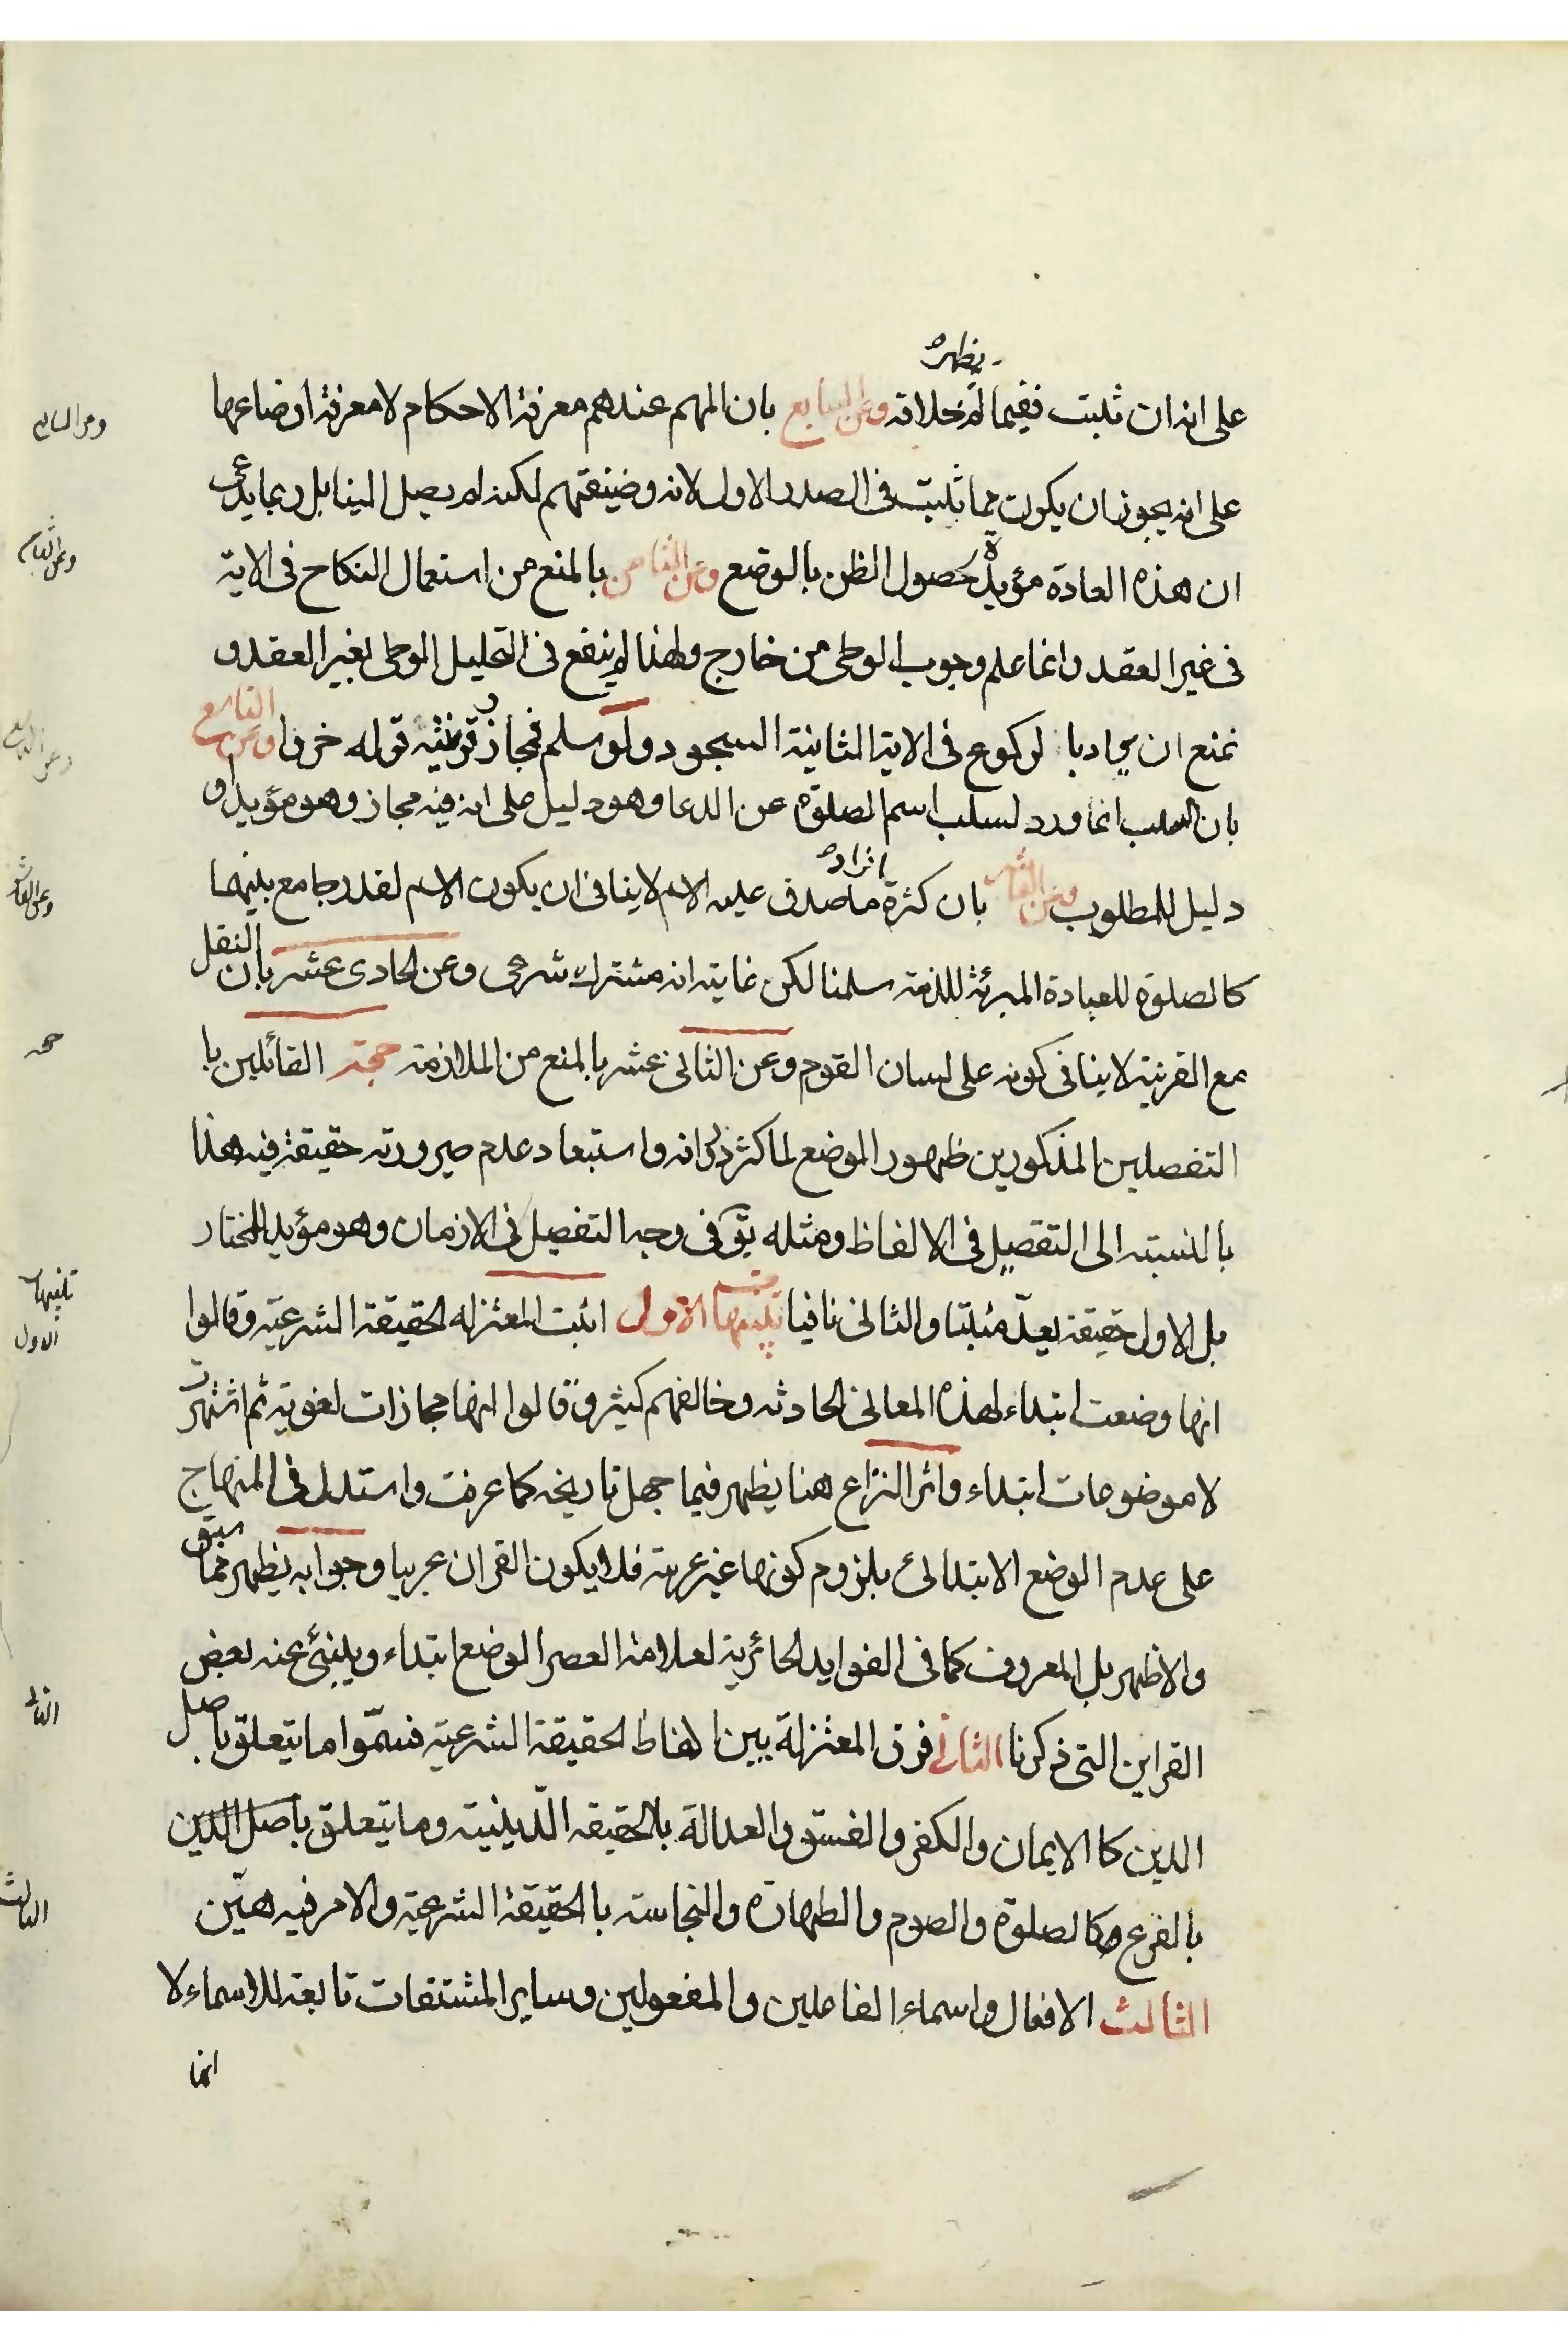 على انه ان ثبت ففيما لم يظهر خلافه وعن السابع بان المهم عندهم معرفة الاحكام لا معرفة اوضاعها
على انه يجوز ان يكون مما ثبت فى الصدر الاول لانه وضيفتهم لكنه لم يصل الينا بل ربما يدعى
ان هذه العادة مؤيدة لحصول الظن بالوضع وعن الثامن بالمنع من استعمال النكاح فى الاية
فى غير العقد وانما علم وجوب الوطى من خارج ولهذا لم ينفع فى التحليل الوطى بغير العقد و
نمنع ان يراد بالركوع فى الاية الثانية السجود ولو سلم فمجاز وقرينته قوله خر وعن التاسع
بان السلب انما ورد لسلب اسم الصلوة عن الدعا وهو دليل على انه فيه مجاز وهو مؤيد او
دليل للمطلوب وعن العاشر بان كثرة افراد ما صدق عليه الاسم لا ينافى ان يكون الاسم لقدر جامع بينهما
كالصلوة للعبادة المبرئة للذمة سلمنا لكن غايته انه مشترك شرعى وعن الحادى عشر بان النقل
مع القرينة لا ينافى كونه على لسان القوم وعن الثانى عشر بالمنع من الملازمة حجة القائلين با
التفصلين المذكورين ظهور الوضع لما كثر دورانه واستبعاد عدم صيرورته حقيقة فيه هذا
بالنسبته الى التفصيل فى الالفاظ ومثله يق فى وجه التفصيل فى الازمان وهو مؤيد للمختار
بل الاول حقيقة يعدّ مثبتا والثانى نافيا تنبيهات الاول اثبت المعتزله الحقيقة الشرعية وقالوا
انها وضعت ابتداء لهذه المعانى الحادثه وخالفهم كثير وقالوا انها مجازات لغوية ثم اشتهرت
لا موضوعات ابتداء واثر النزاع هنا يظهر فيما جهل تاريخه كما عرفت واستدل فى المنهاج
على عدم الوضع الابتدائى بلزوم كونها غير عربية فلا يكون القران عربيا وجوابه يظهر مما سبق
والاظهر بل المعروف كما فى الفوايد الحائرية لعلامة العصر الوضع ابتداء وينبئ عنه بعض
القراين التى ذكرنا الثانى فرق المعتزلة بين الفاظ الحقيقة الشرعية فسمّوا ما يتعلق باصل
الدين كا الايمان والكفر والفسق والعدالة بالحقيقه الدّينية وما يتعلق باصل الدين
بالفرع كالصلوة والصوم والطهارة والنجاسة بالحقيقة الشرعية والامر فيه هيّن
الثالث الافعال واسماء الفاعلين والمفعولين وساير المشتقات تابعة للاسماء لا
انما
وعن العاشر
حجه
تنبيهات
الاول
الثانى
الثالث